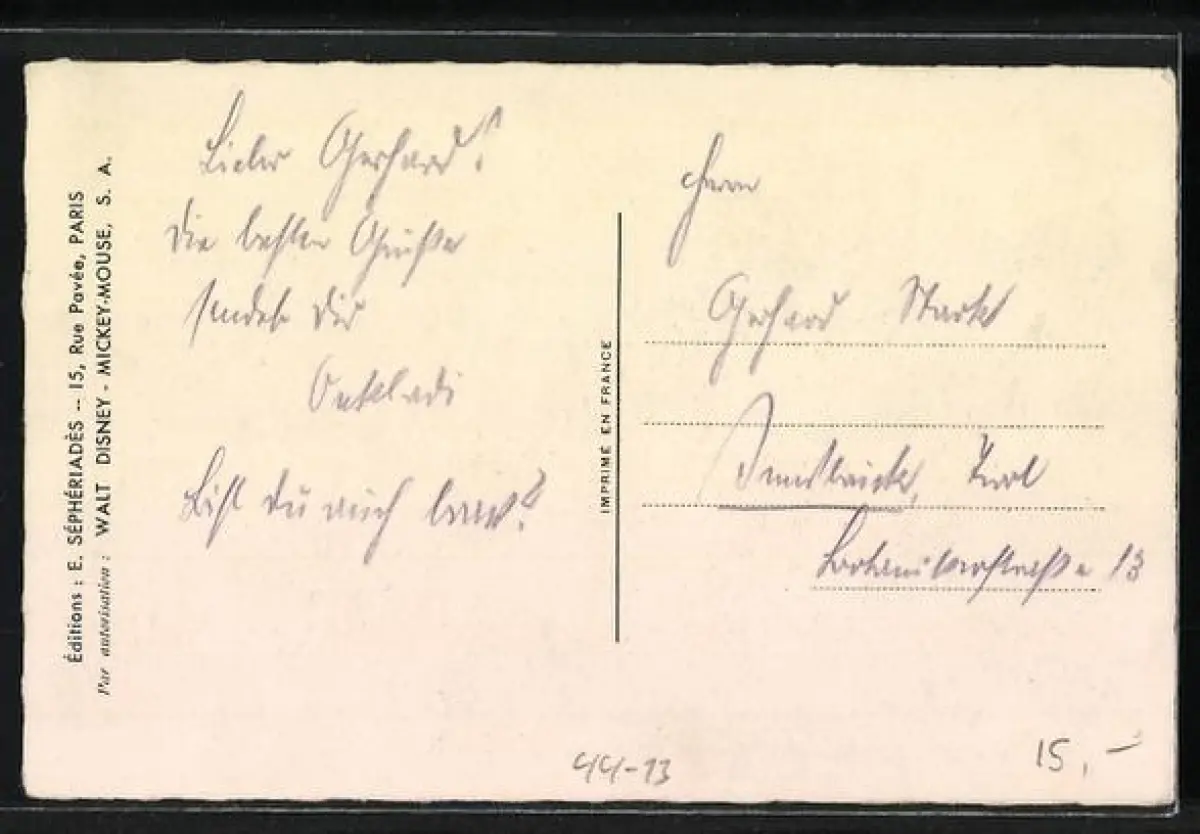 Éditions : E. SÉPHÉRIADÈS -- 15, Rue Pavée, PARIS
Par autorisation : WALT DISNEY - MICKEY-MOUSE, S. A.
Lieber Gerhard!
Die besten Grüße
sendet Dir
Bist Du auch brav?
IMPRIMÉ EN FRANCE
Herrn
Gerhard
Innsbruck, Tirol
Botanikerstraße 13
44-13
15,-